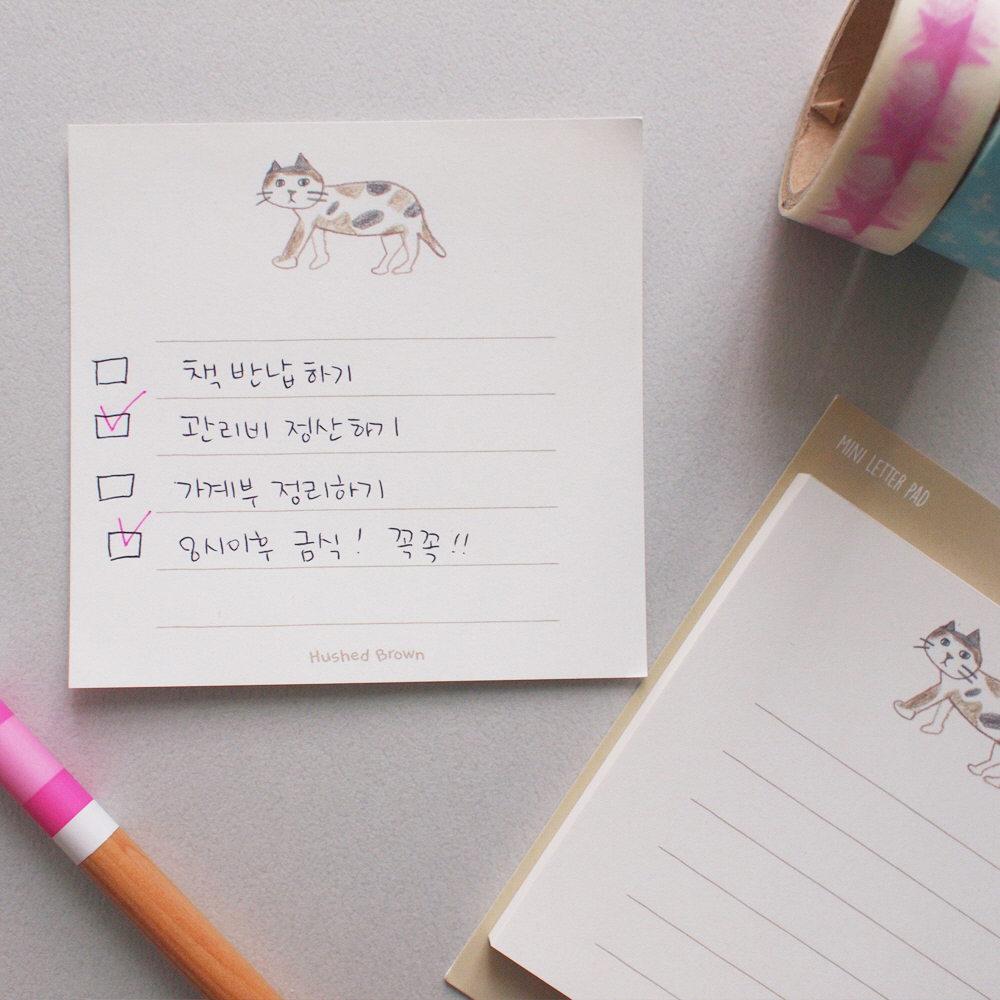 책 반납하기
관리비 정산하기
가계부 정리하기
8시이후 금식! 꼭꼭!!
Hushed Brown
MINI LETTER PAD